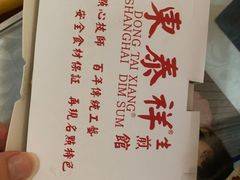 東泰祥®
生煎館
DONG TAI XIANG®
SHANGHAI DIM SUM
心技師 百年傳統工藝
安全食材保証 再現名點特色